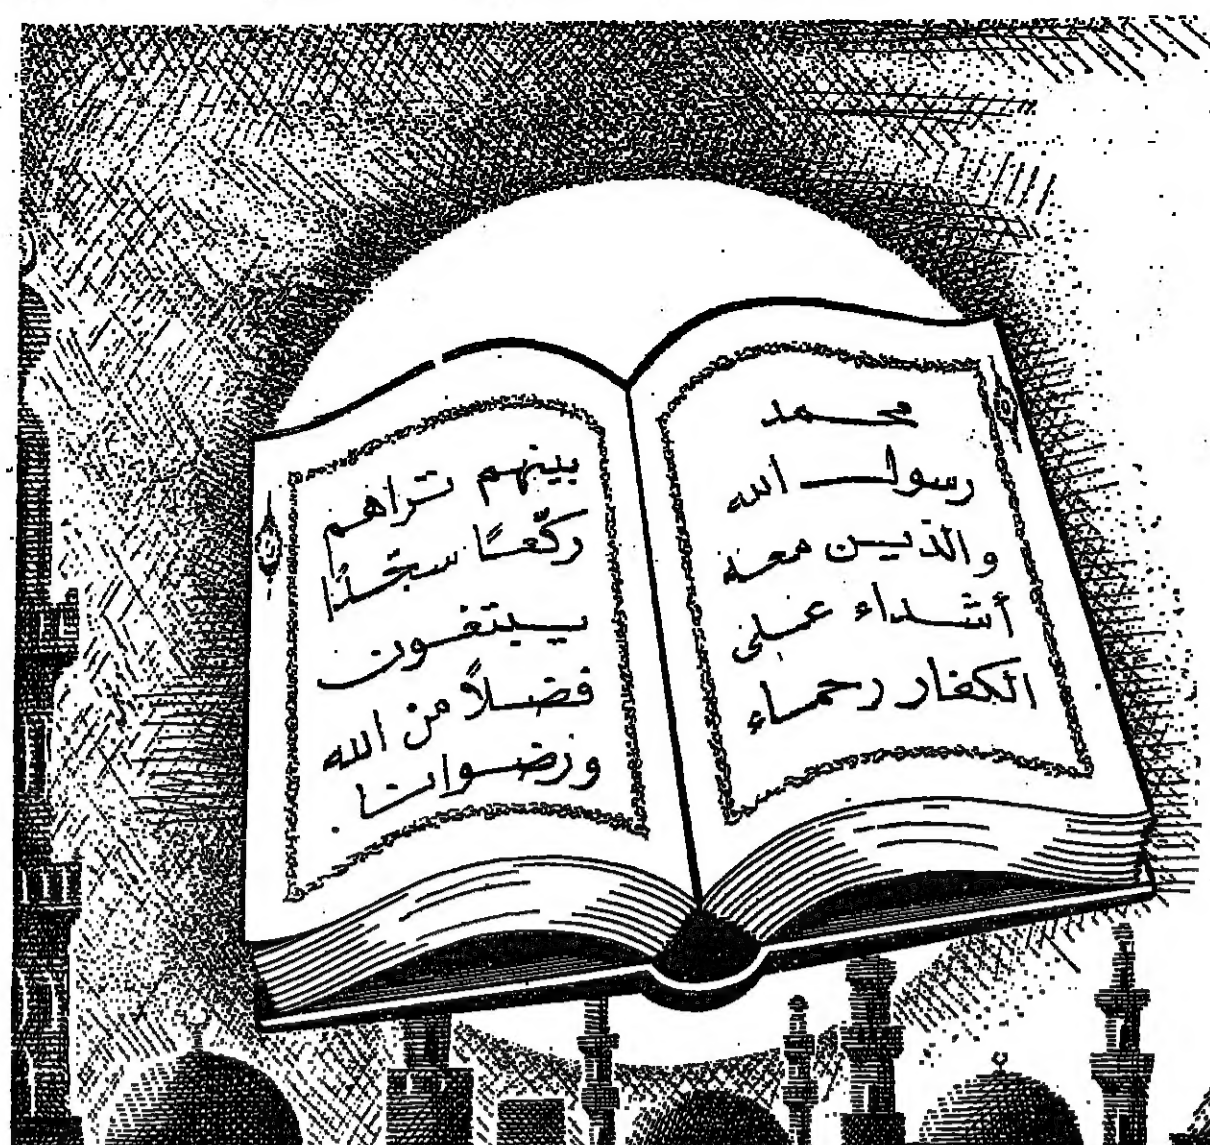 محمد
رسول الله
والذين معه
أشداء على
الكفار رحماء
بينهم تراهم
ركّعًا سجّدًا
يبتغون
فضلاً من الله
ورضوانا .